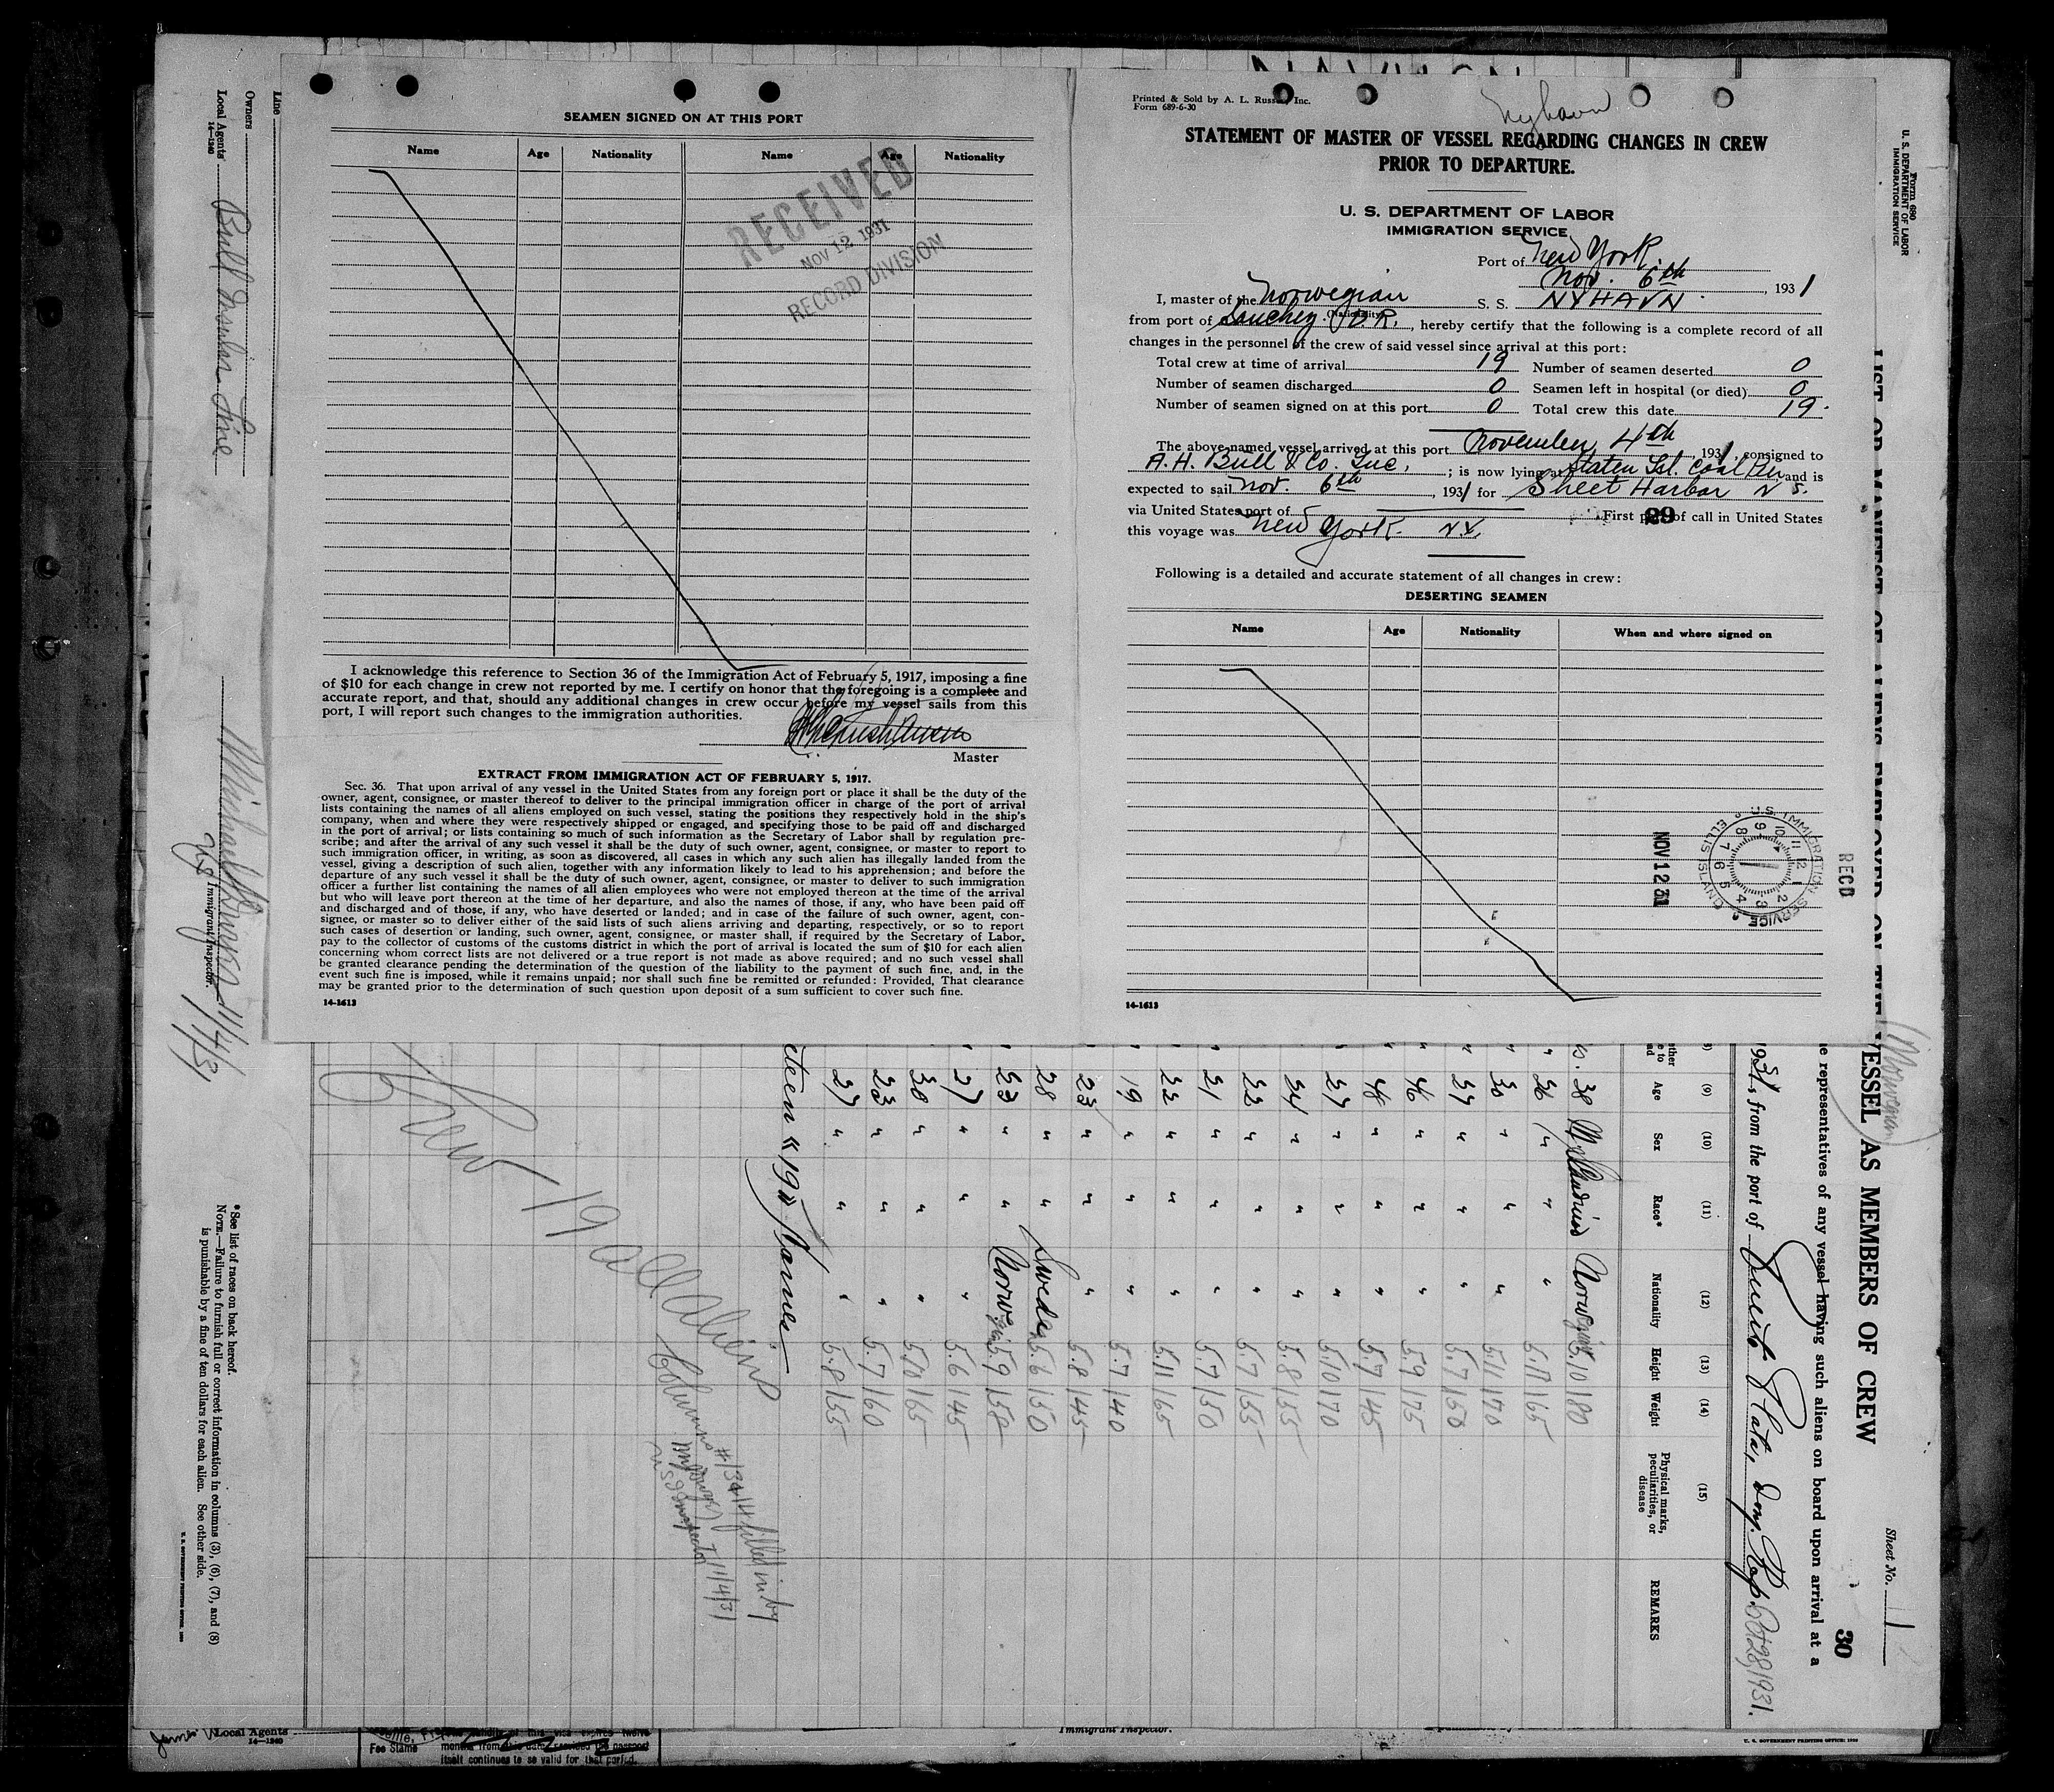 SEAMEN SIGNED ON AT THIS PORT
Name Age Nationality Name Age Nationality
RECEIVED
NOV 12 1931
RECORD DIVISION
I acknowledge this reference to Section 36 of the Immigration Act of February 5, 1917, imposing a fine
of $10 for each change in crew not reported by me. I certify on honor that the foregoing is a complete and
accurate report, and that, should any additional changes in crew occur before my vessel sails from this
port, I will report such changes to the immigration authorities.
Master
EXTRACT FROM IMMIGRATION ACT OF FEBRUARY 5, 1917.
Sec. 36. That upon arrival of any vessel in the United States from any foreign port or place it shall be the duty of the
owner, agent, consignee, or master thereof to deliver to the principal immigration officer in charge of the port of arrival
lists containing the names of all aliens employed on such vessel, stating the positions they respectively hold in the ship's
company, when and where they were respectively shipped or engaged, and specifying those to be paid off and discharged
in the port of arrival; or lists containing so much of such information as the Secretary of Labor shall by regulation pre-
scribe; and after the arrival of any such vessel it shall be the duty of such owner, agent, consignee, or master to report to
such immigration officer, in writing, as soon as discovered, all cases in which any such alien has illegally landed from the
vessel, giving a description of such alien, together with any information likely to lead to his apprehension; and before the
departure of any such vessel it shall be the duty of such owner, agent, consignee, or master to deliver to such immigration
officer a further list containing the names of all alien employees who were not employed thereon at the time of the arrival
but who will leave port thereon at the time of her departure, and also the names of those, if any, who have been paid off
and discharged and of those, if any, who have deserted or landed; and in case of the failure of such owner, agent, con-
signee, or master so to deliver either of the said lists of such aliens arriving and departing, respectively, or so to report
such cases of desertion or landing, such owner, agent, consignee, or master shall, if required by the Secretary of Labor,
pay to the collector of customs of the customs district in which the port of arrival is located the sum of $10 for each alien
concerning whom correct lists are not delivered or a true report is not made as above required; and no such vessel shall
be granted clearance pending the determination of the question of the liability to the payment of such fine, and, in the
event such fine is imposed, while it remains unpaid; nor shall such fine be remitted or refunded: Provided, That clearance
may be granted prior to the determination of such question upon deposit of a sum sufficient to cover such fine.
14-1613
Printed & Sold by A. L. Russell, Inc.
Form 689-6-30
Nyhavn
STATEMENT OF MASTER OF VESSEL REGARDING CHANGES IN CREW
PRIOR TO DEPARTURE.
U. S. DEPARTMENT OF LABOR
IMMIGRATION SERVICE
Port of New York.
Nov. 6th, 1931
I, master of the Norwegian S. S. NYHAVN.
(Nationality)
from port of Sanchez. D.R., hereby certify that the following is a complete record of all
changes in the personnel of the crew of said vessel since arrival at this port:
Total crew at time of arrival 19 Number of seamen deserted 0
Number of seamen discharged 0 Seamen left in hospital (or died) 0
Number of seamen signed on at this port 0 Total crew this date 19.
The above-named vessel arrived at this port November 4th, 1931, consigned to
A. H. Bull & Co. Inc.; is now lying at Staten Isl. Coal Pier and is
expected to sail Nov. 6th, 1931 for Sheet Harbor N S.
via United States port of First port of call in United States
29
this voyage was New York N.Y.
Following is a detailed and accurate statement of all changes in crew:
DESERTING SEAMEN
Name Age Nationality When and where signed on
NOV 12 31
U.S. IMMIGRATION SERVICE
ELLIS ISLAND
RECD
14-1613
Line
Owners
Local Agents Bull Insular Line
14-1240
Immigrant Inspector.
11/4/31
*See list of races on back hereof.
NOTE.—Failure to furnish full or correct information in columns (3), (6), (7), and (8)
is punishable by a fine of ten dollars for each alien. See other side.
U. S. GOVERNMENT PRINTING OFFICE: 1930
Form 680
U. S. DEPARTMENT OF LABOR
IMMIGRATION SERVICE
LIST OR MANIFEST OF ALIENS EMPLOYED ON THE VESSEL AS MEMBERS OF CREW
(Norwegian)
Sheet No. 1
30
e representatives of any vessel having such aliens on board upon arrival at a
1931, from the port of Puerto Plata, Dom. Rep. Oct 28, 1931.
(9) (10) (11) (12) (13) (14) (15)
Age Sex Race* Nationality Height Weight Physical marks, peculiarities, or disease REMARKS
38 M Scandinav Norwegian 5.10 180
36 " " " 5.11 165
30 " " " 5.11 170
" " " 5.7 150
46 " " " 5.9 175
48 " " " 5.7 145
" " " 5.10 170
" " " 5.8 155
" " " 5.7 155
21 " " " 5.7 150
22 " " " 5.11 165
19 " " " 5.7 140
23 " " " 5.8 145
28 " " Sweden 5.6 150
" " Norwegian 5.9 158
27 " " " 5.6 145
30 " " " 5.10 165
23 " " " 5.7 160
27 " " " 5.8 155
teen "19" Names.
Crew 19 all aliens
Columns
#13 & 14 filled in by
11/4/31
Local Agents
14-1240
Fee Stamp
months from this date provided the passport
itself continues to be valid for that period.
Immigrant Inspector.
U. S. GOVERNMENT PRINTING OFFICE: 1930